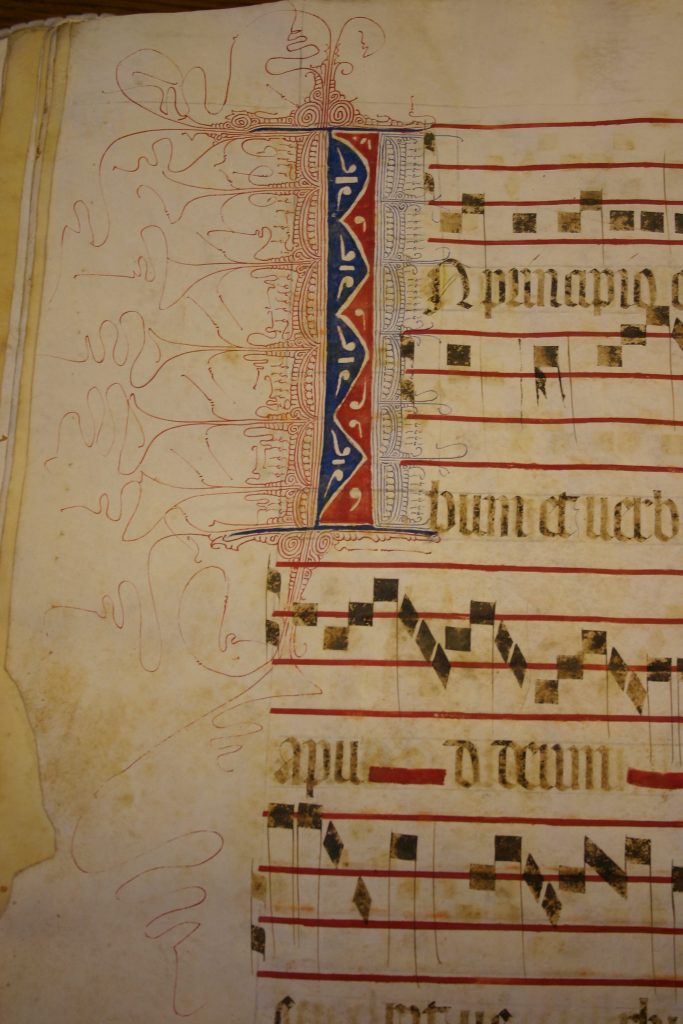 IN principio
bum et uerb
apu d deum